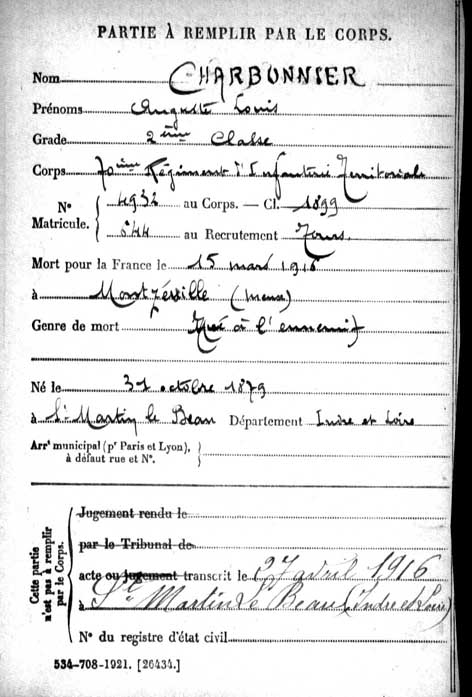 PARTIE À REMPLIR PAR LE CORPS.
Nom CHARBONNIER
Prénoms Auguste Louis
Grade 2ème Classe
Corps 70ème Régiment d'Infanterie Territoriale
N° Matricule. { 4932 au Corps. — Cl. 1899
844 au Recrutement Tours.
Mort pour la France le 15 mars 1916
à Montzéville (Meuse)
Genre de mort Tué à l'ennemi
Né le 31 octobre 1879
à St Martin le Beau Département Indre et Loire
Arrt municipal (pr Paris et Lyon), }
à défaut rue et N°.
Cette partie n'est pas à remplir par le Corps.
Jugement rendu le
par le Tribunal de
acte ou jugement transcrit le 27 avril 1916
à St Martin le Beau (Indre et Loire)
N° du registre d'état civil
534-708-1921. [26434.]